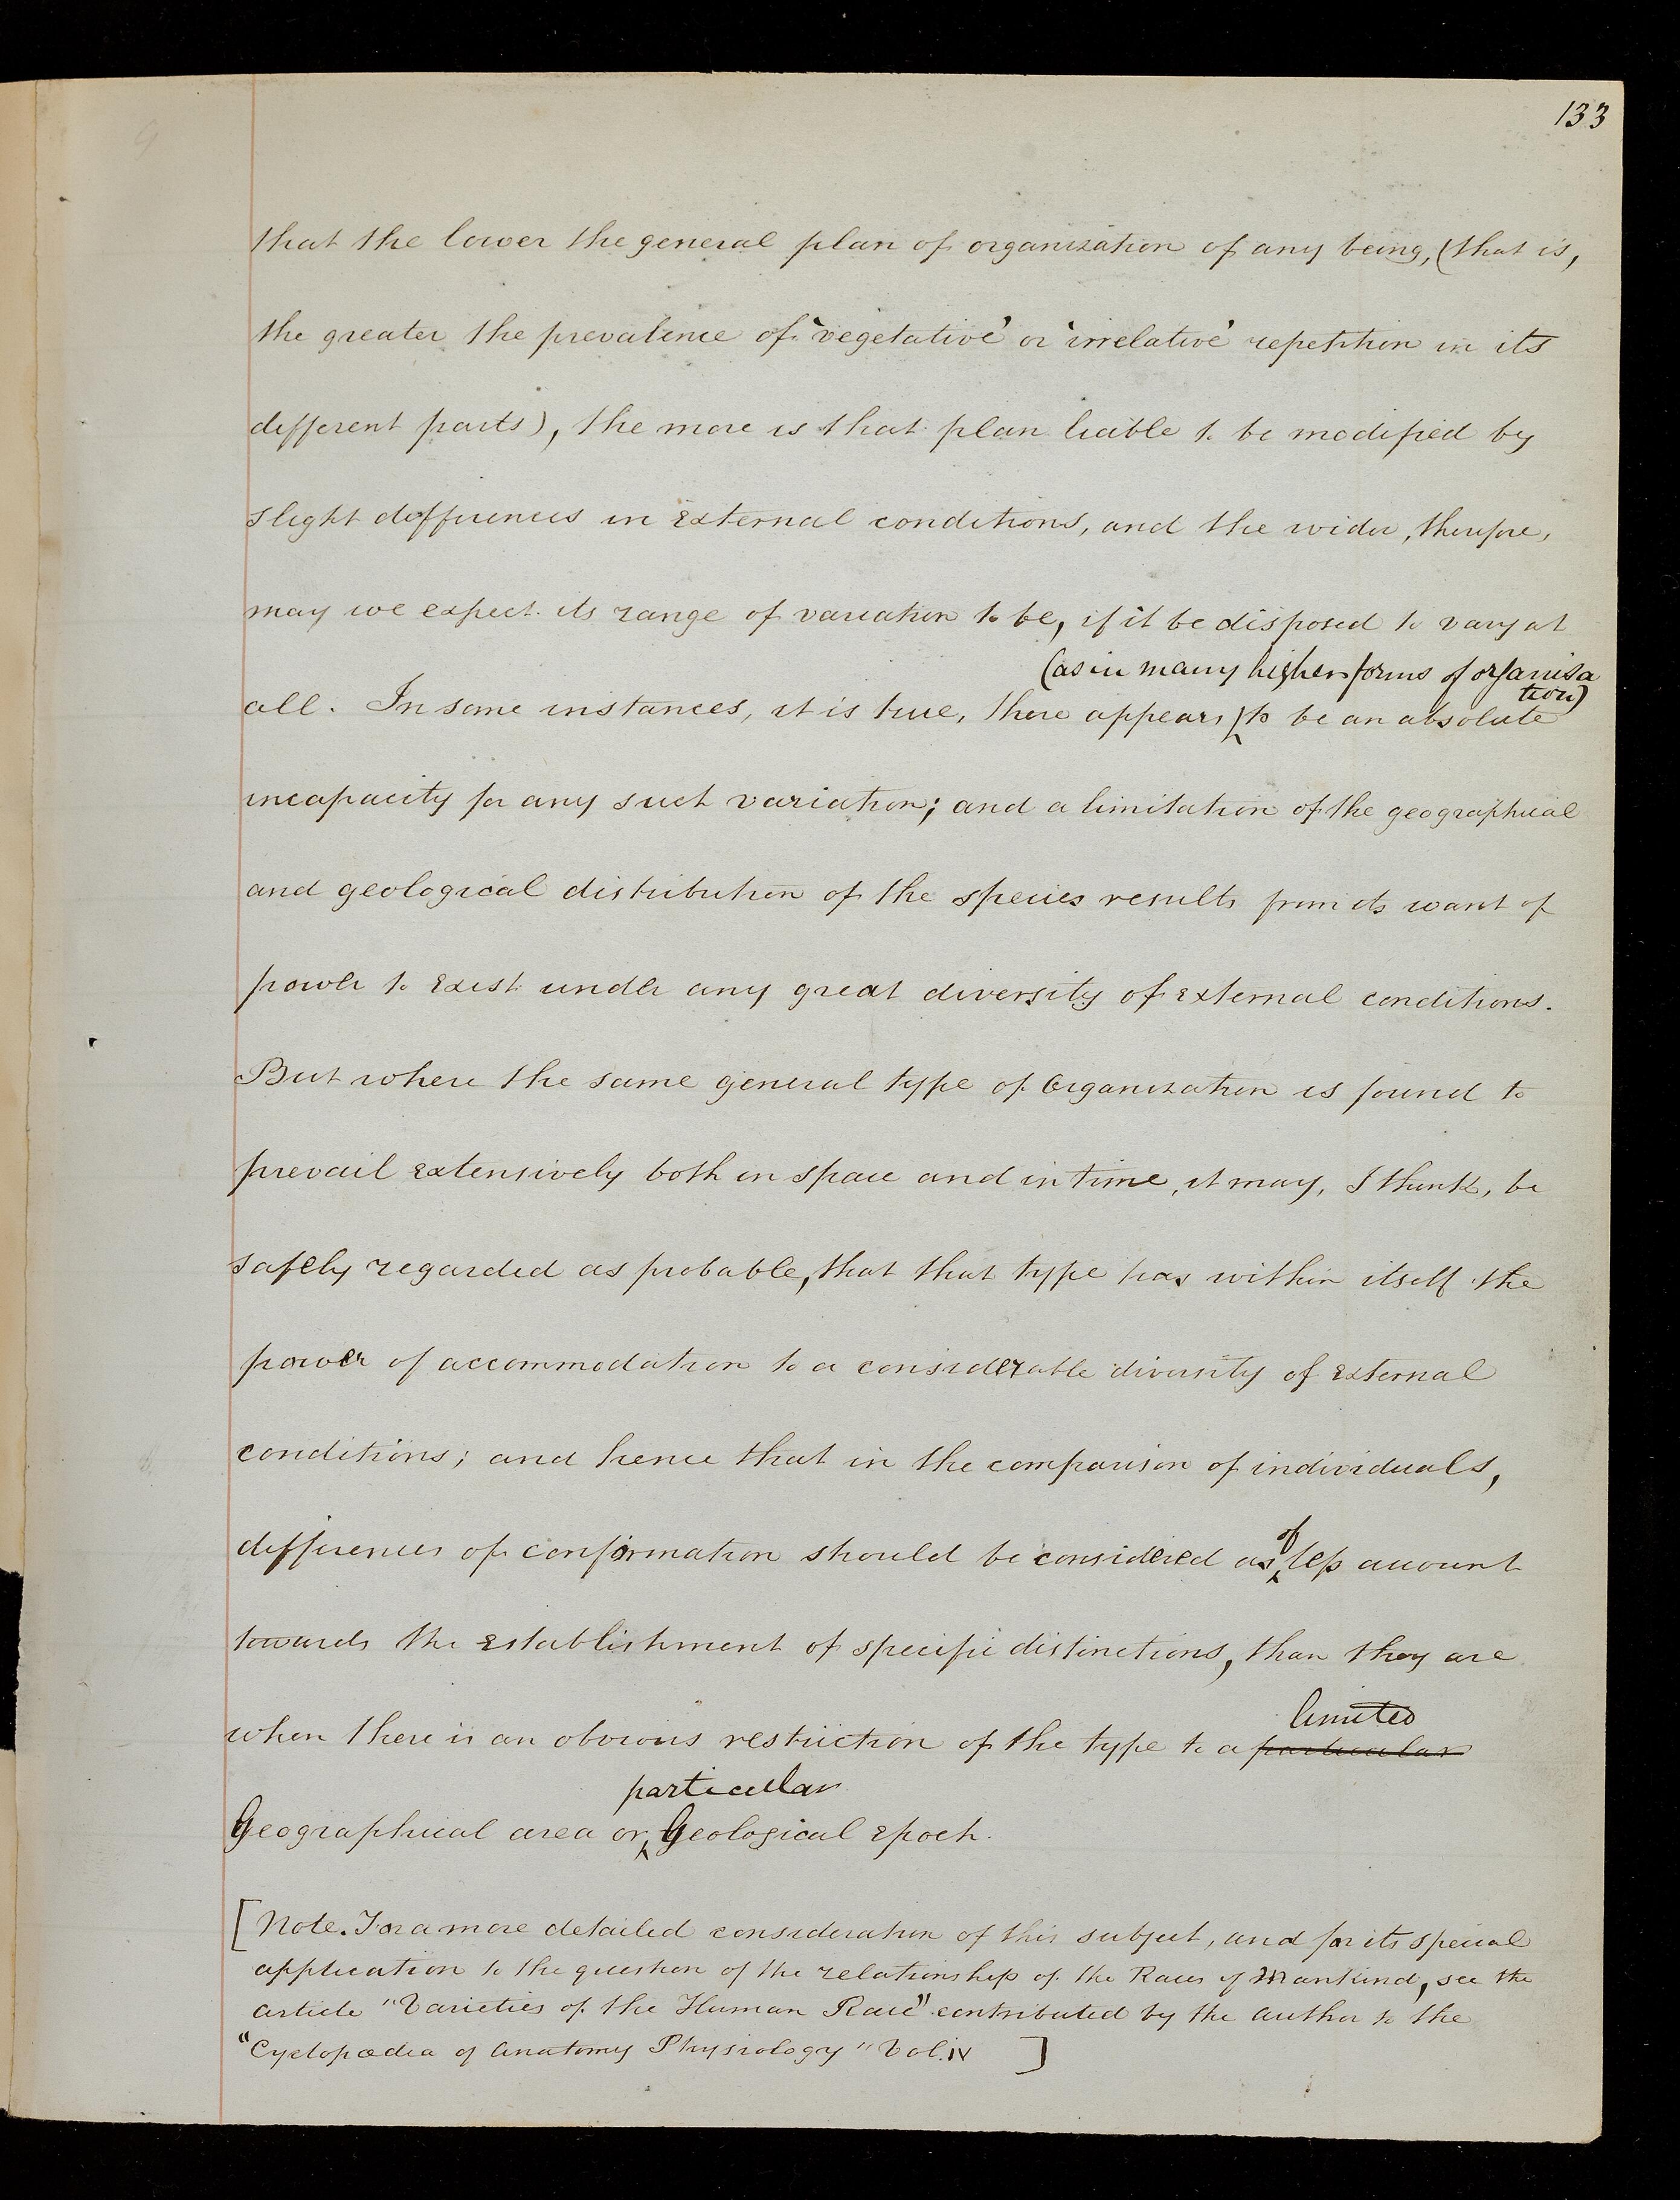 133
that the lower the general plan of organization of any being, (that is,
the greater the prevalence of 'vegetative' or 'irrelative' repetition in its
different parts), the more is that plan liable to be modified by
slight differences in external conditions, and the wider, therefore,
may we expect its range of variation to be, if it be disposed to vary at
(as in many higher forms of organisa
tion)
all. In some instances, it is true, there appears to be an absolute
incapacity for any such variation; and a limitation of the geographical
and geological distribution of the species results from its want of
power to exist under any great diversity of external conditions.
But where the same general type of Organization is found to
prevail extensively both in space and in time, it may, I think, be
safely regarded as probable, that that type has within itself the
power of accommodation to a considerable diversity of external
conditions; and hence that in the comparison of individuals,
of
differences of conformation should be considered as less account
towards the establishment of specific distinctions, than they are
limited
when there is an obvious restriction of the type to a particular
particular
Geographical area or Geological epoch.
[Note. For a more detailed consideration of this subject, and for its special
application to the question of the relationship of the Races of Mankind, see the
article "Varieties of the Human Race" contributed by the author to the
"Cyclopædia of Anatomy Physiology" Vol. IV ]